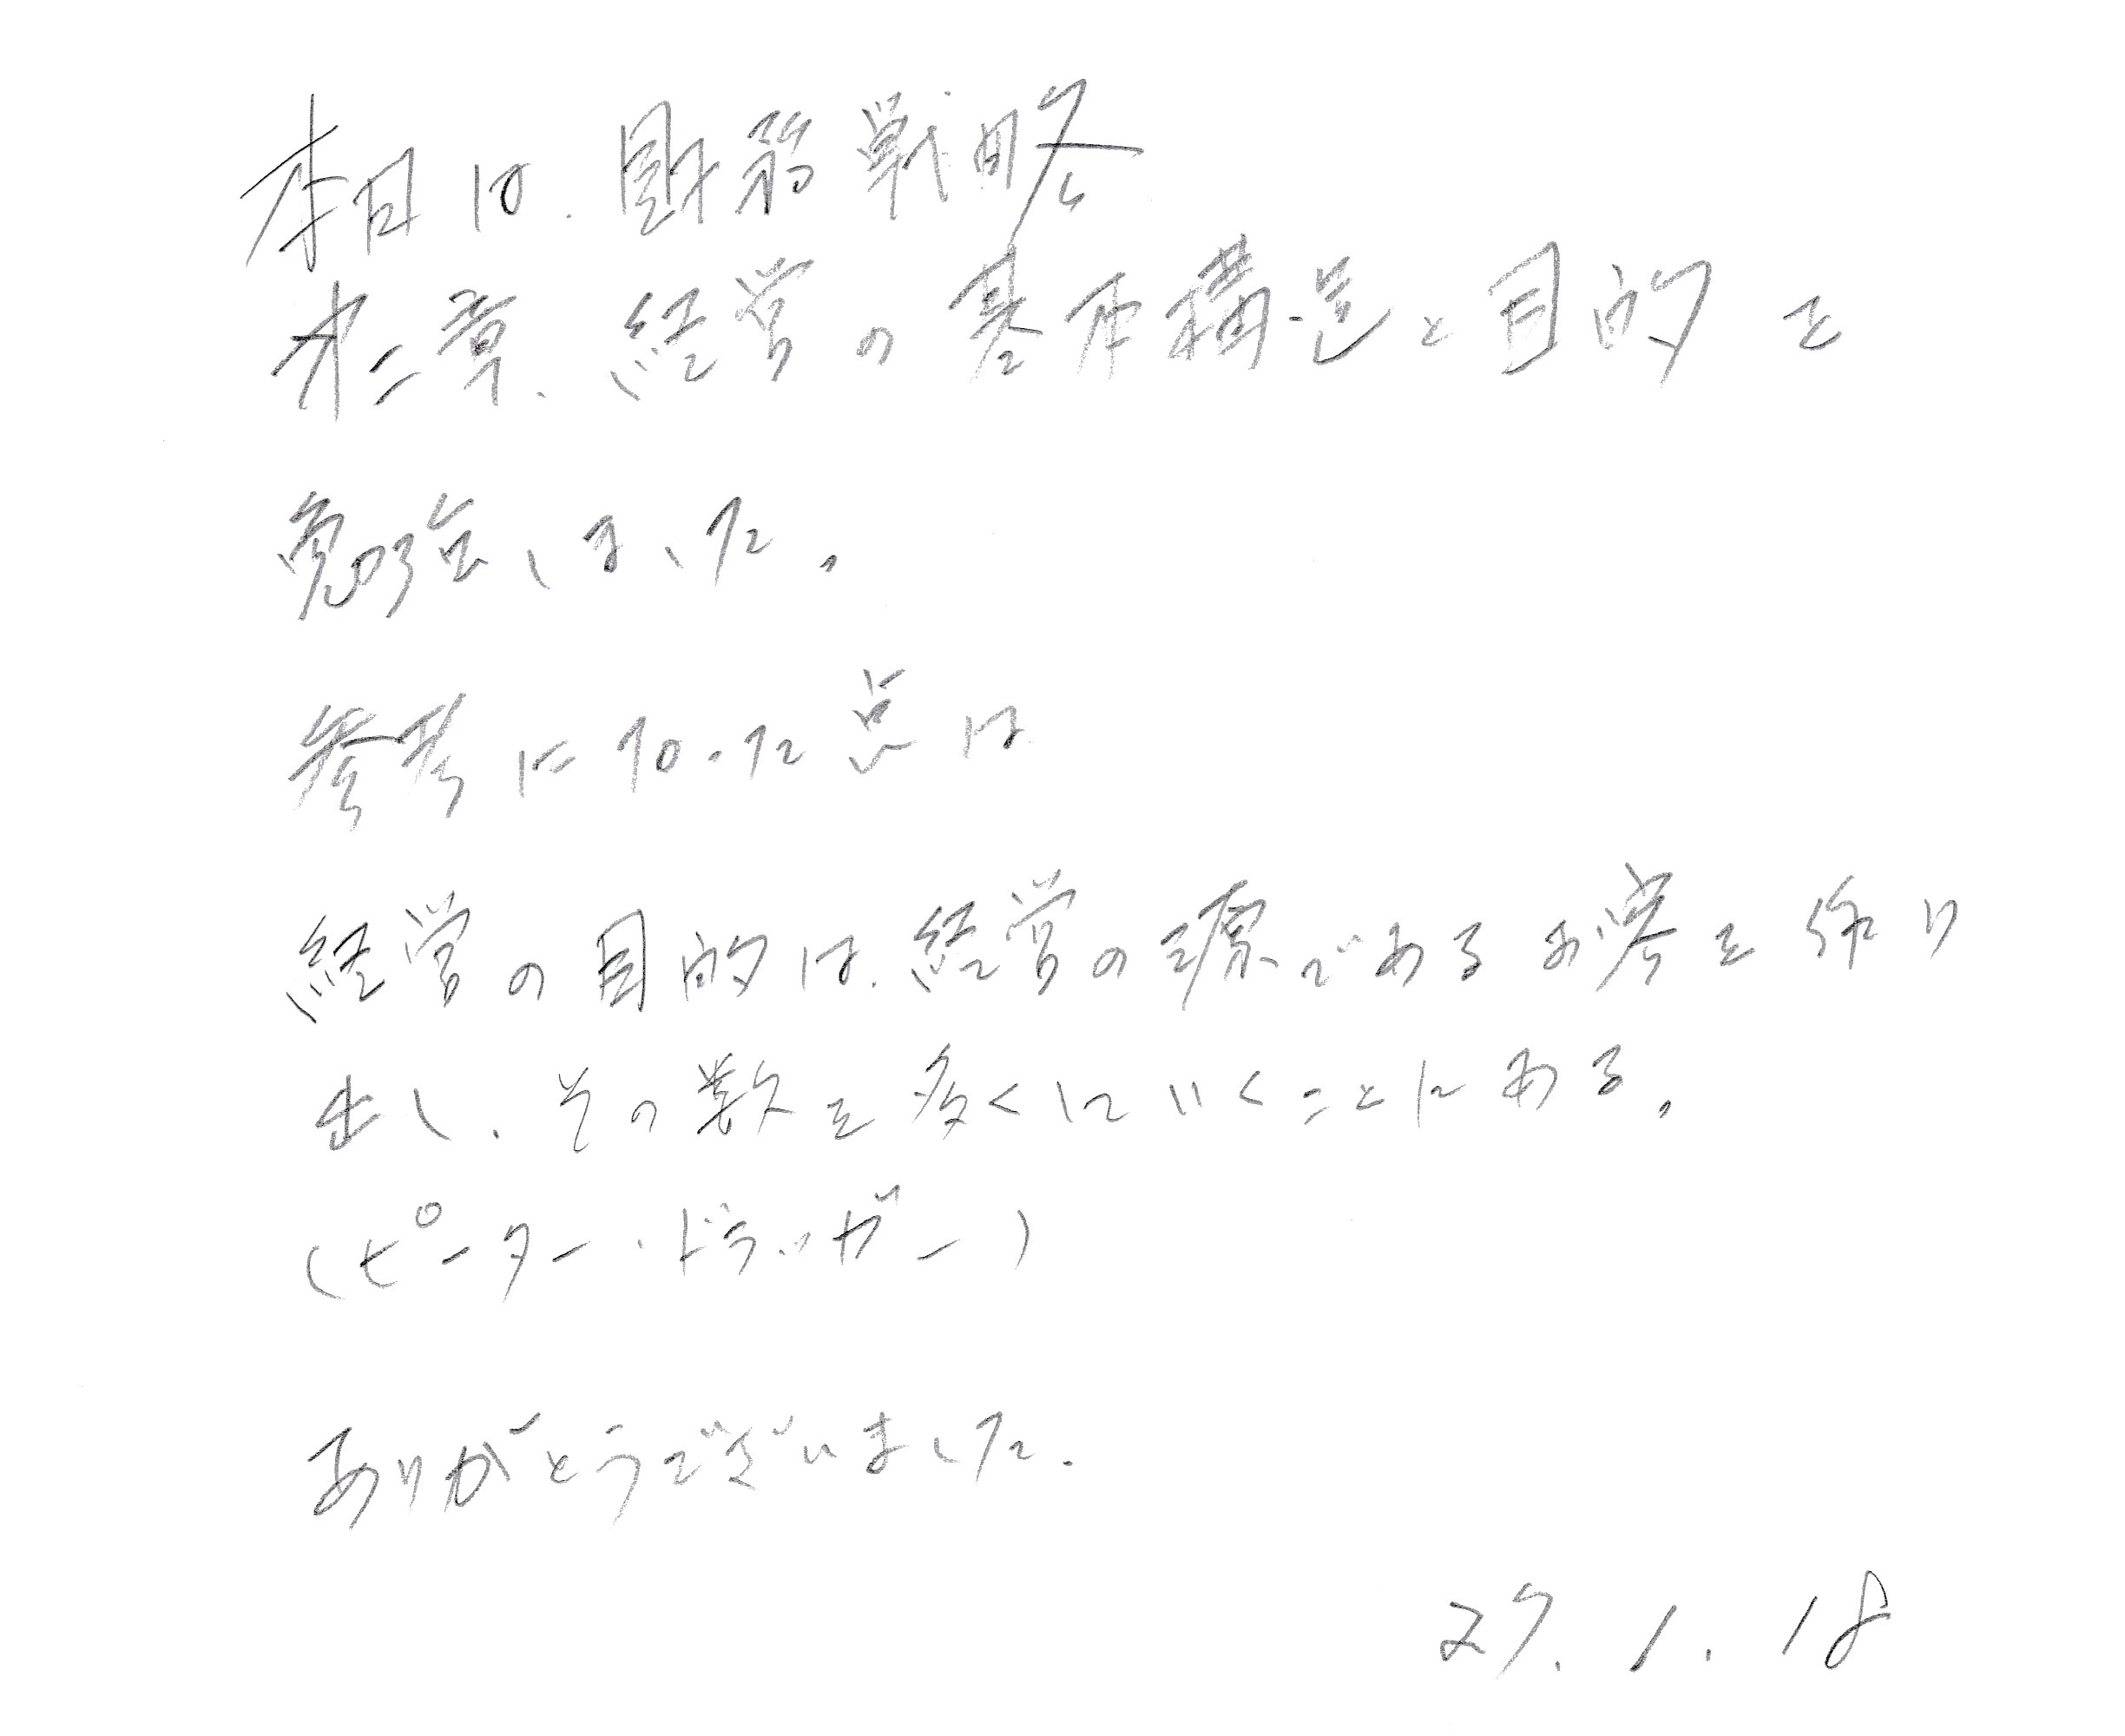 本日は、財務戦略
才二章、経営の基本構造と目的を
勉強しました。
参考になった点は
経営の目的は、経営の源であるお客を作り
出し、その数を多くしていくことにある。
(ピーター・ドラッガー)
ありがとうございました。
27.1.18